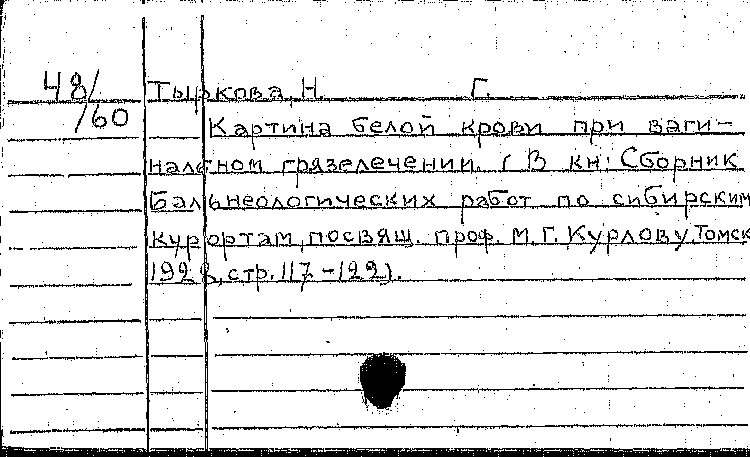 48/60
Тыркова, Н. Г.
Картина белой крови при ваги-
нальном грязелечении. (В кн: Сборник
бальнеологических работ по сибирским
курортам, посвящ. проф. М.Г. Курлову. Томск
стр. 117-122).